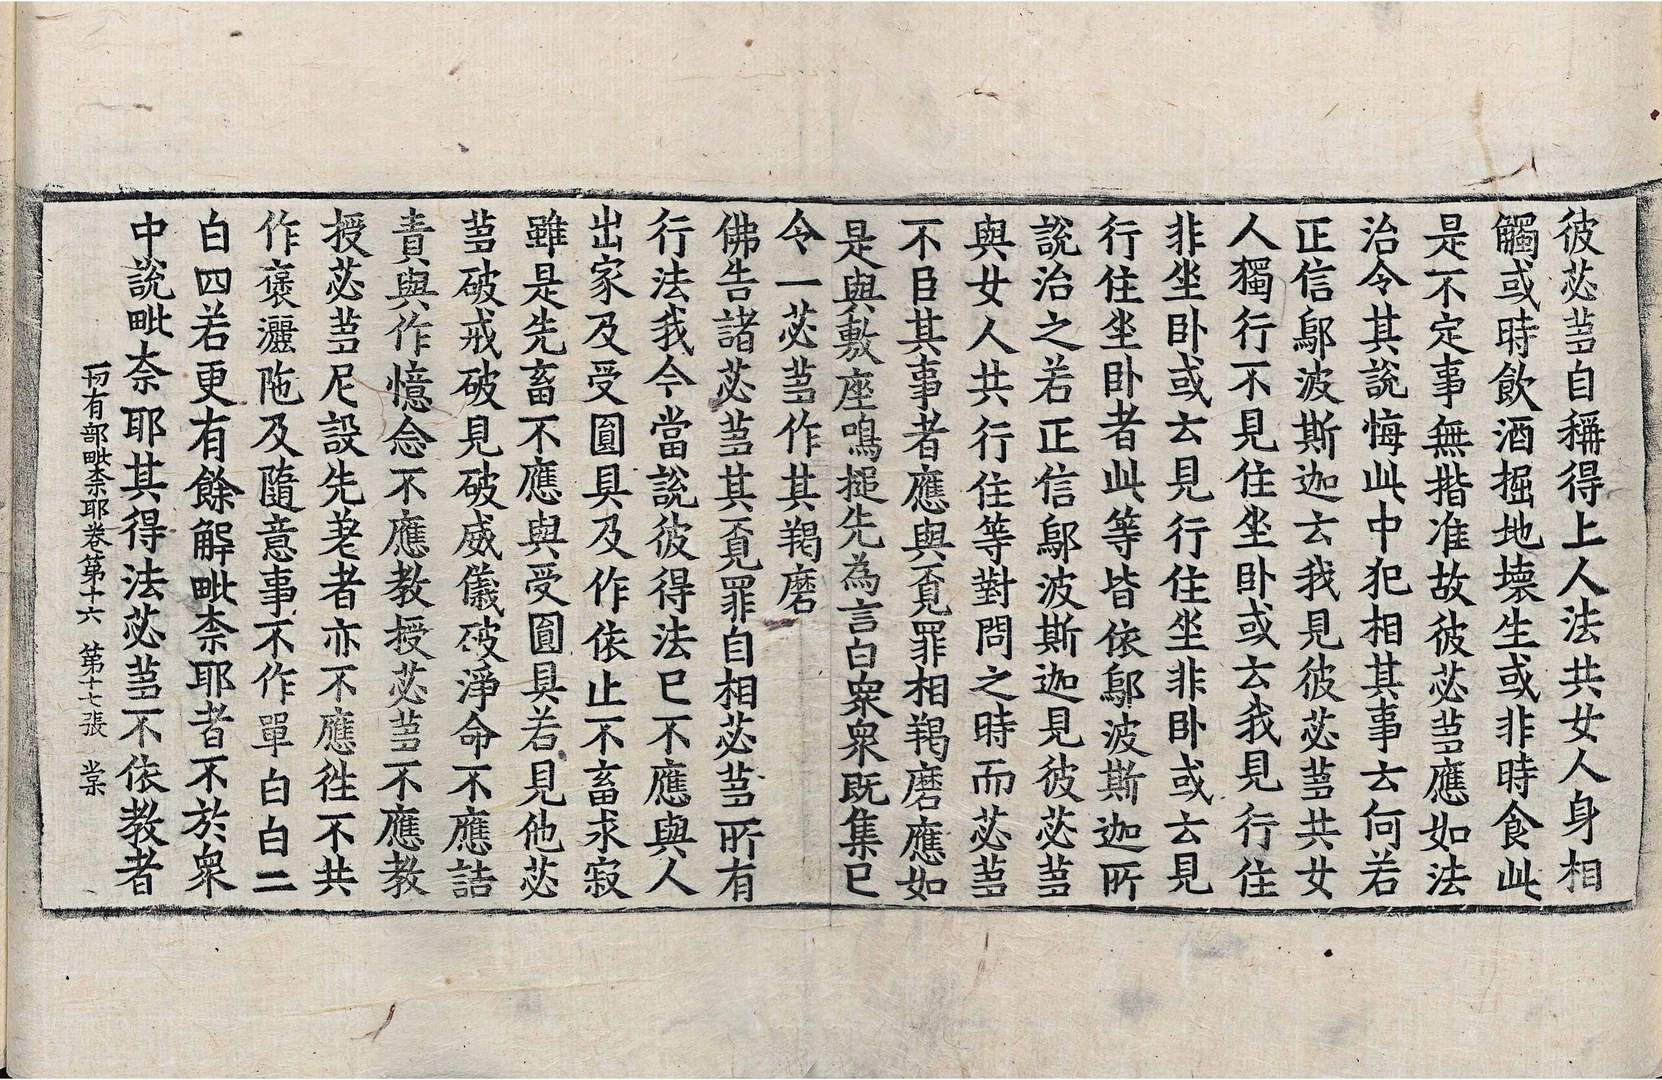 彼苾蒭自稱得上人法共女人身相
觸或時飲酒掘地壞生或非時食此
是不定事無揩准故彼苾蒭應如法
治令其說悔此中犯相其事云何若
正信鄔波斯迦云我見彼苾蒭共女
人獨行不見住坐卧或云我見行住
非坐卧或云見行住坐非卧或云見
行住坐卧者此等皆依鄔波斯迦所
說治之若正信鄔波斯迦見彼苾蒭
與女人共行住等對問之時而苾蒭
不臣其事者應與覔罪相羯磨應如
是與敷座鳴搥先為言白衆衆既集已
令一苾蒭作其羯磨
佛告諸苾蒭其覔罪自相苾蒭所有
行法我今當說彼得法已不應與人
出家及受圎具及作依止不畜求寂
雖是先畜不應與受圎具若見他苾
蒭破戒破見破威儀破淨命不應詰
責與作憶念不應教授苾蒭不應教
授苾蒭尼設先差者亦不應徃不共
作褒灑陁及隨意事不作單白白二
白四若更有餘解毗柰耶者不於衆
中說毗柰耶其得法苾蒭不依教者
有部毗柰耶卷第十六 第十七張 棠